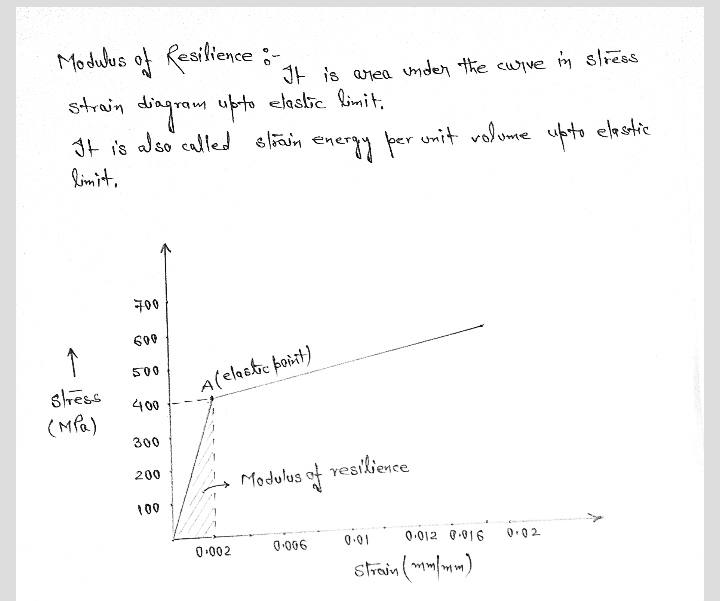 Modulus of Resilience :-
It is area under the curve in stress
strain diagram upto elastic limit.
It is also called strain energy per unit volume upto elastic
limit.
700
600
500
400
300
200
100
↑
Stress
(MPa)
A (elastic point)
→ Modulus of resilience
0.002 0.006 0.01 0.012 0.016 0.02
Strain (mm/mm)